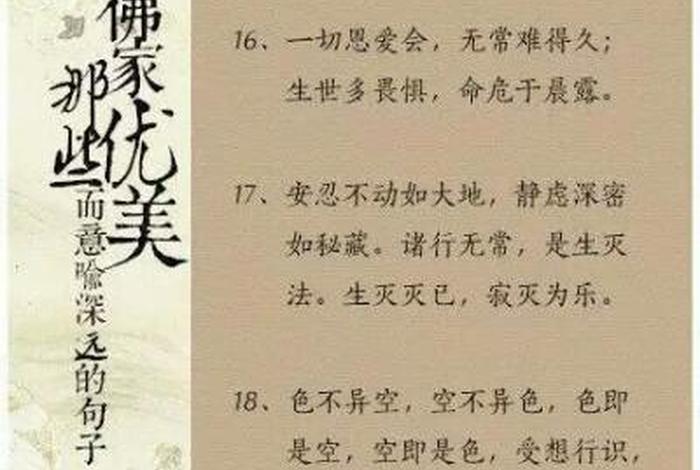 佛家
那些优美
而意喻深远的句子
16、一切恩爱会，无常难得久；
生世多畏惧，命危于晨露。
17、安忍不动如大地，静虑深密
如秘藏。诸行无常，是生灭
法。生灭灭已，寂灭为乐。
18、色不异空，空不异色，色即
是空，空即是色，受想行识，